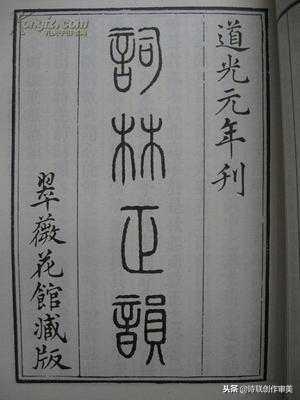 道光元年刊
詞林正韻
翠薇花館藏版
头条 @诗联创作审美